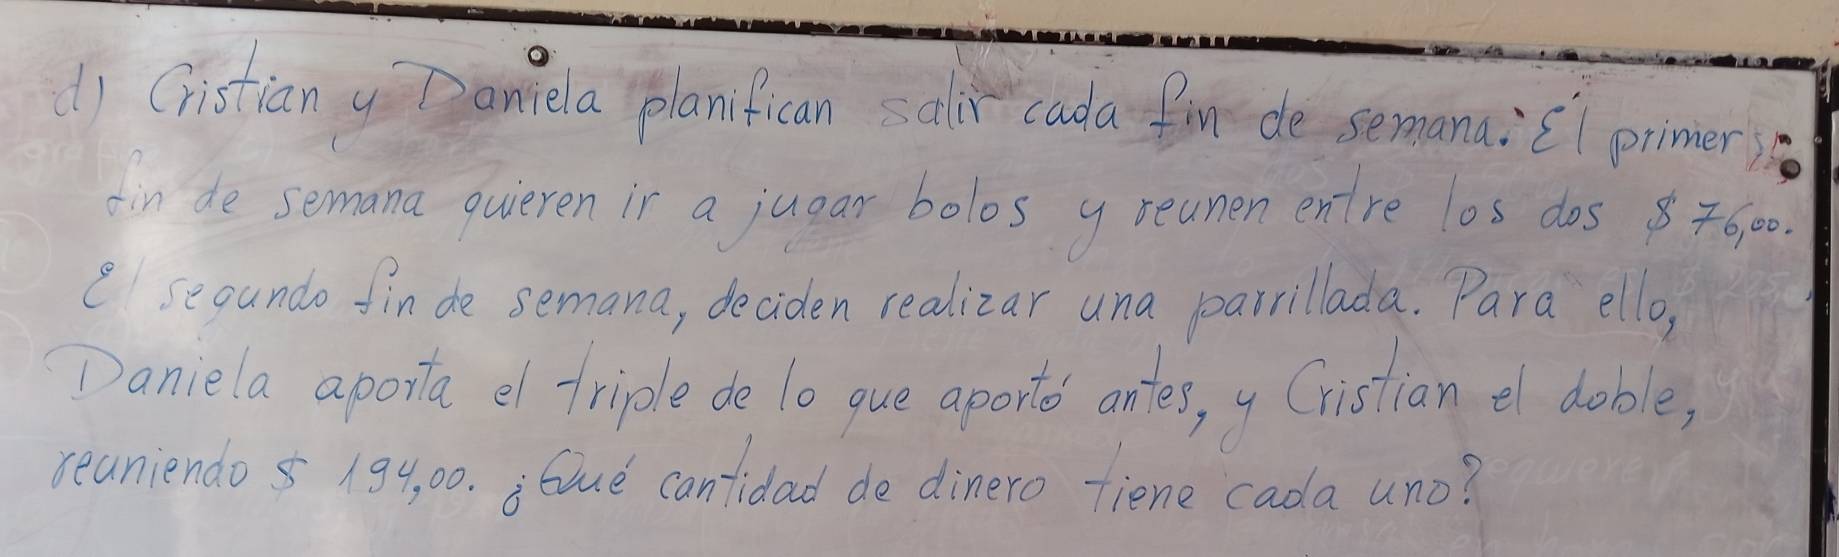 d) Cristian y Daniela planifican salir cada fin de semana. El primer
fin de semana quieren ir a jugar bolos y reunen entre los dos $ 76,00.
El segundo fin de semana, deciden realizar una parrillada. Para ello,
Daniela aporta el triple de lo que aportó antes, y Cristian el doble,
reuniendo $ 194,00. ¿Qué cantidad de dinero tiene cada uno?